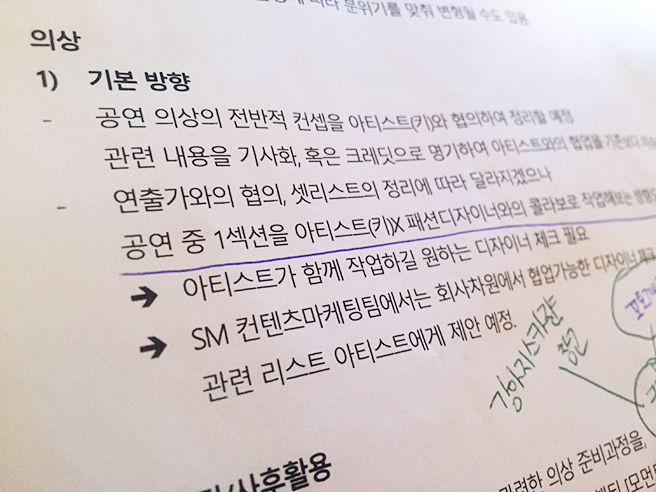 따라 분위기를 맞춰 변형될 수도 있음.
의상
1) 기본 방향
- 공연 의상의 전반적 컨셉을 아티스트(키)와 협의하여 정리할 예정
관련 내용을 기사화, 혹은 크레딧으로 명기하여 아티스트와의 협업을 기존보다
- 연출가와의 협의, 셋리스트의 정리에 따라 달라지겠으나
공연 중 1섹션을 아티스트(키)X 패션디자이너와의 콜라보로 작업해보는 방향
➔ 아티스트가 함께 작업하길 원하는 디자이너 체크 필요
➔ SM 컨텐츠마케팅팀에서는 회사차원에서 협업가능한 디자이너 체크
관련 리스트 아티스트에게 제안 예정.
/사후활용
의상 준비과정을,